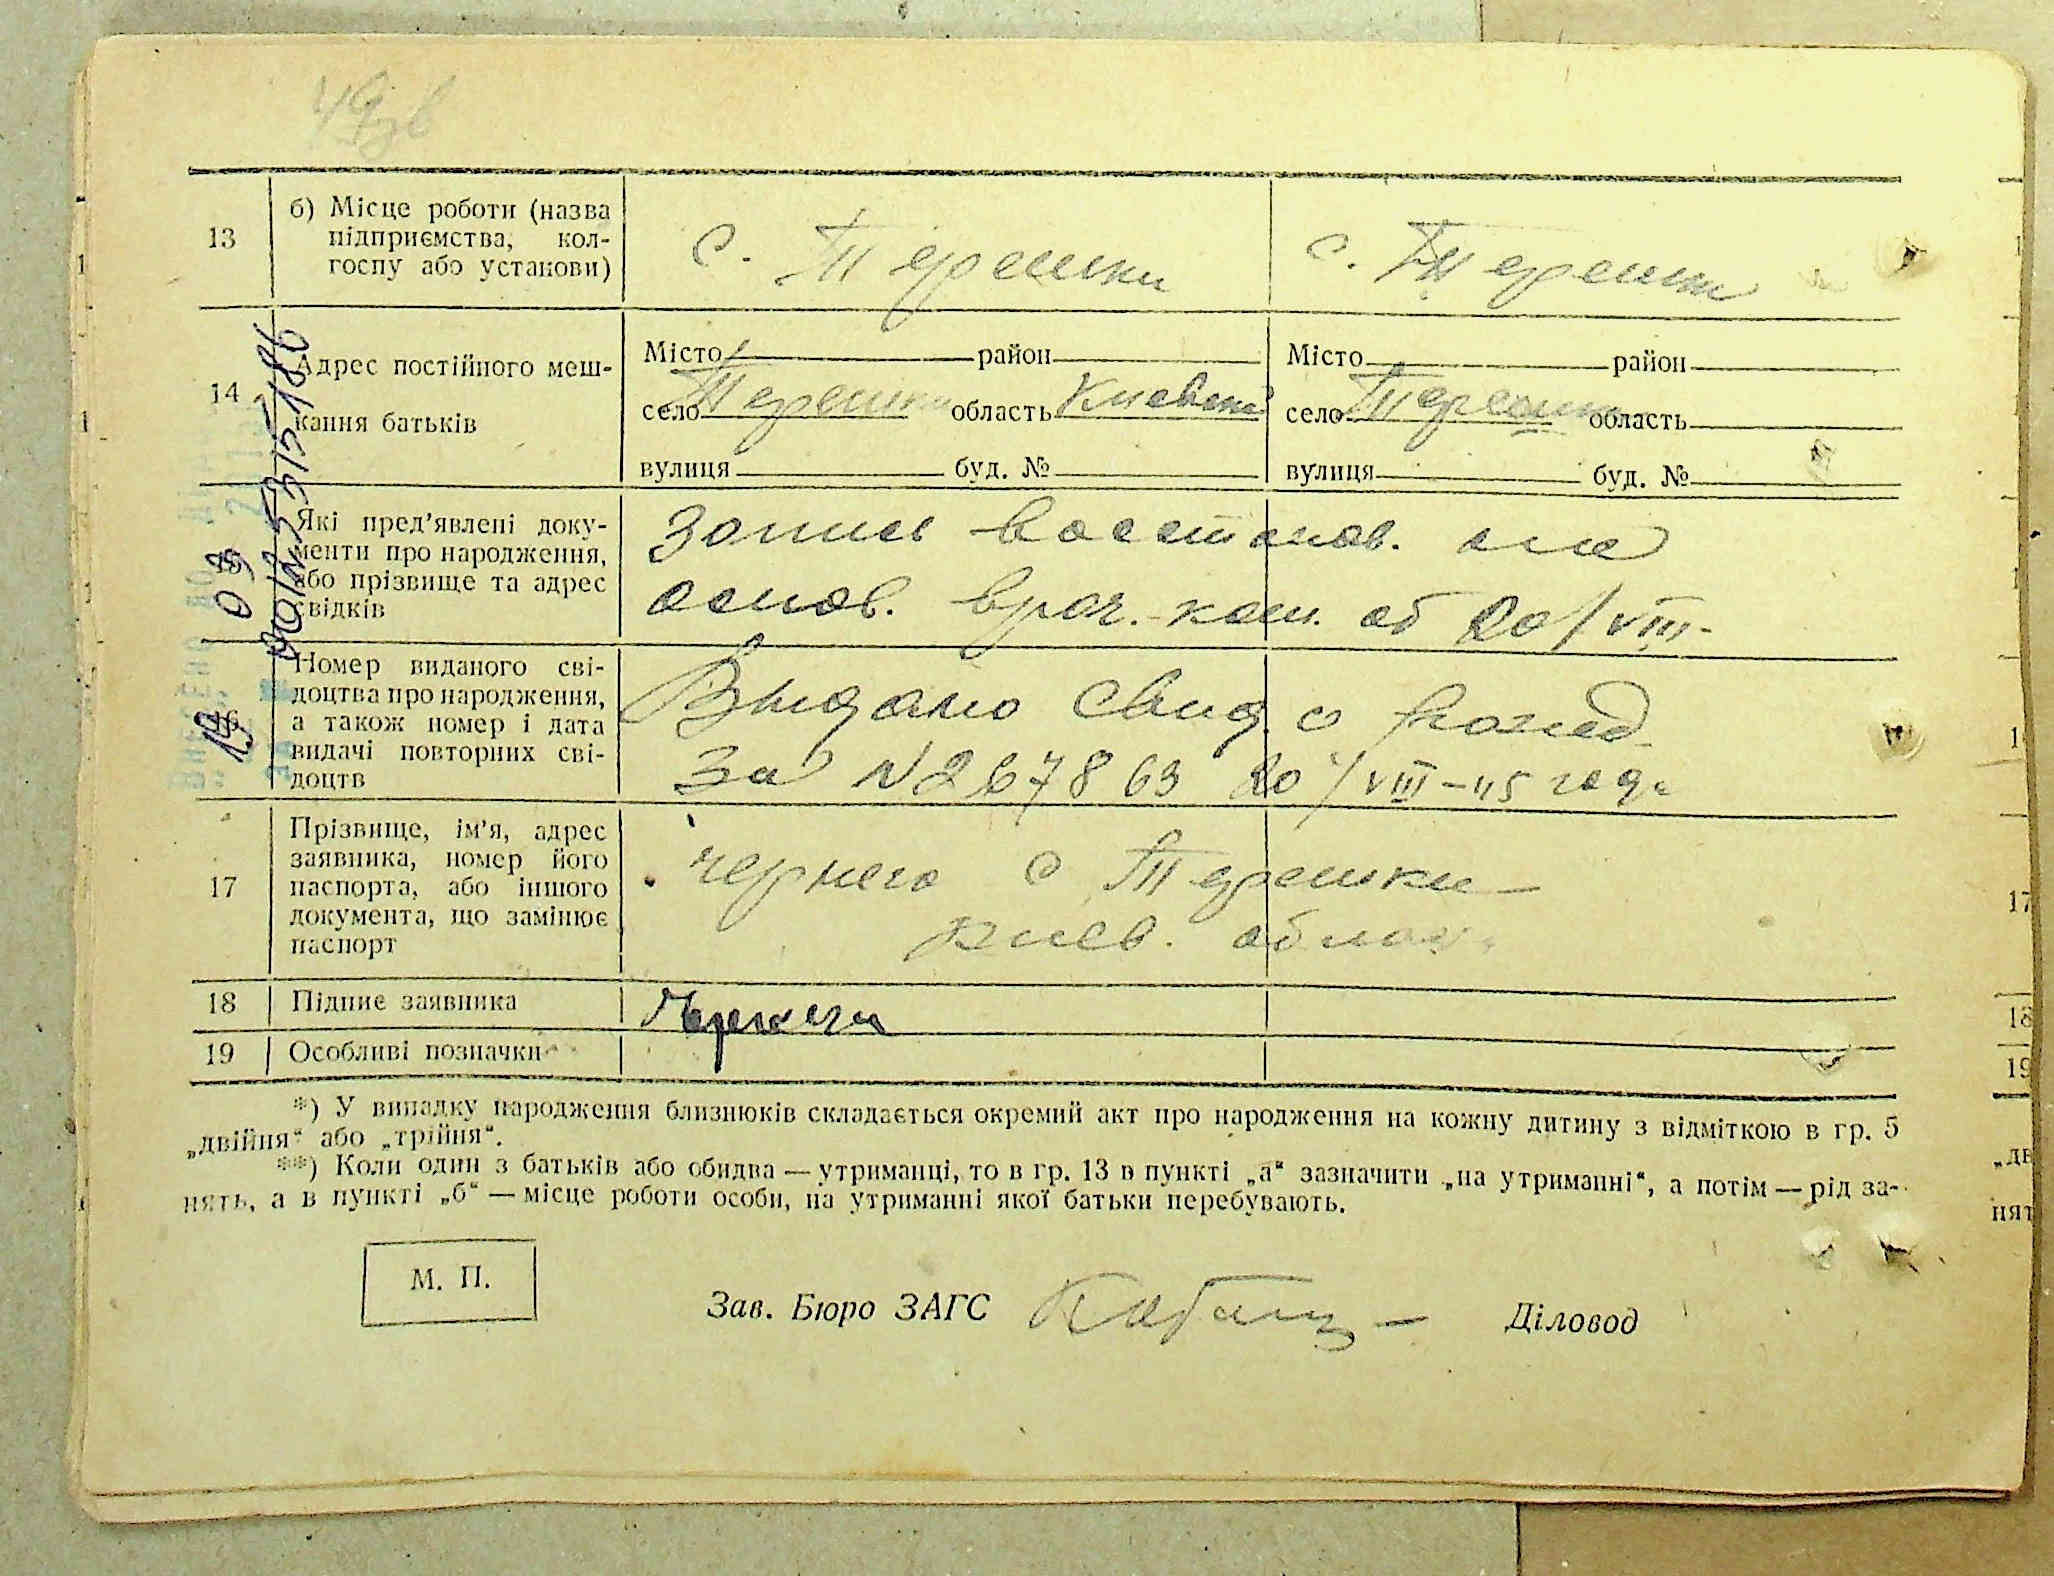 49зв
13 б) Місце роботи (назва підприємства, кол-госпу або установи)
с. Терешки
с. Терешки
14 Адрес постійного меш-
кання батьків
Місто район
село Терешки область Киевской
вулиця буд. №
Місто район
село Терешки область
вулиця буд. №
Які пред'явлені доку-
менти про народження,
або прізвище та адрес
свідків
Запись восстанов. на
основ. врач. ком. от 20/VIII-
16 Номер виданого сві-
доцтва про народження,
а також номер і дата
видачі повторних сві-
доцтв
Выдано Свид. о рожд.
за N 267863 20/VIII-45 года
17 Прізвище, ім'я, адрес
заявника, номер його
паспорта, або іншого
документа, що замінює
паспорт
с Терешки
киев. област
18 Підпис заявника
19 Особливі позначки
*) У випадку народження близнюків складається окремий акт про народження на кожну дитину з відміткою в гр. 5
„двійня“ або „трійня“.
**) Коли один з батьків або обидва — утриманці, то в гр. 13 в пункті „а“ зазначити „на утриманні“, а потім — рід за-
нять, а в пункті „б“ — місце роботи особи, на утриманні якої батьки перебувають.
М. П.
Зав. Бюро ЗАГС
Діловод
17
18
19
„дв
нят